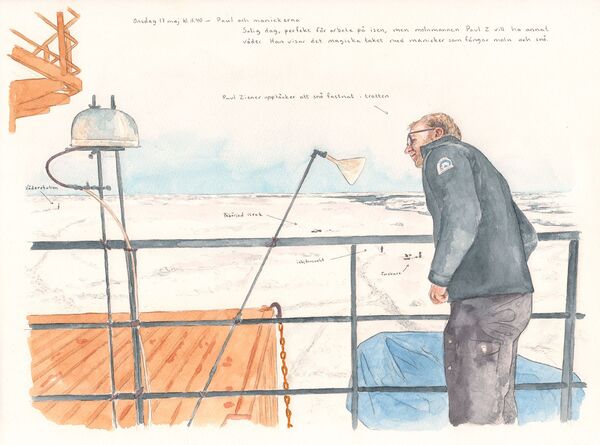 Onsdag 17 maj kl 11.40 – Paul och manickerna
Solig dag, perfekt för arbete på isen, men molnmannen Paul Z vill ha annat
väder. Han visar det magiska taket med manicker som fångar moln och snö.
Paul Zieger upptäcker att snö fastnat i tratten
Väderstation
isbjörnsvakt
Forskare